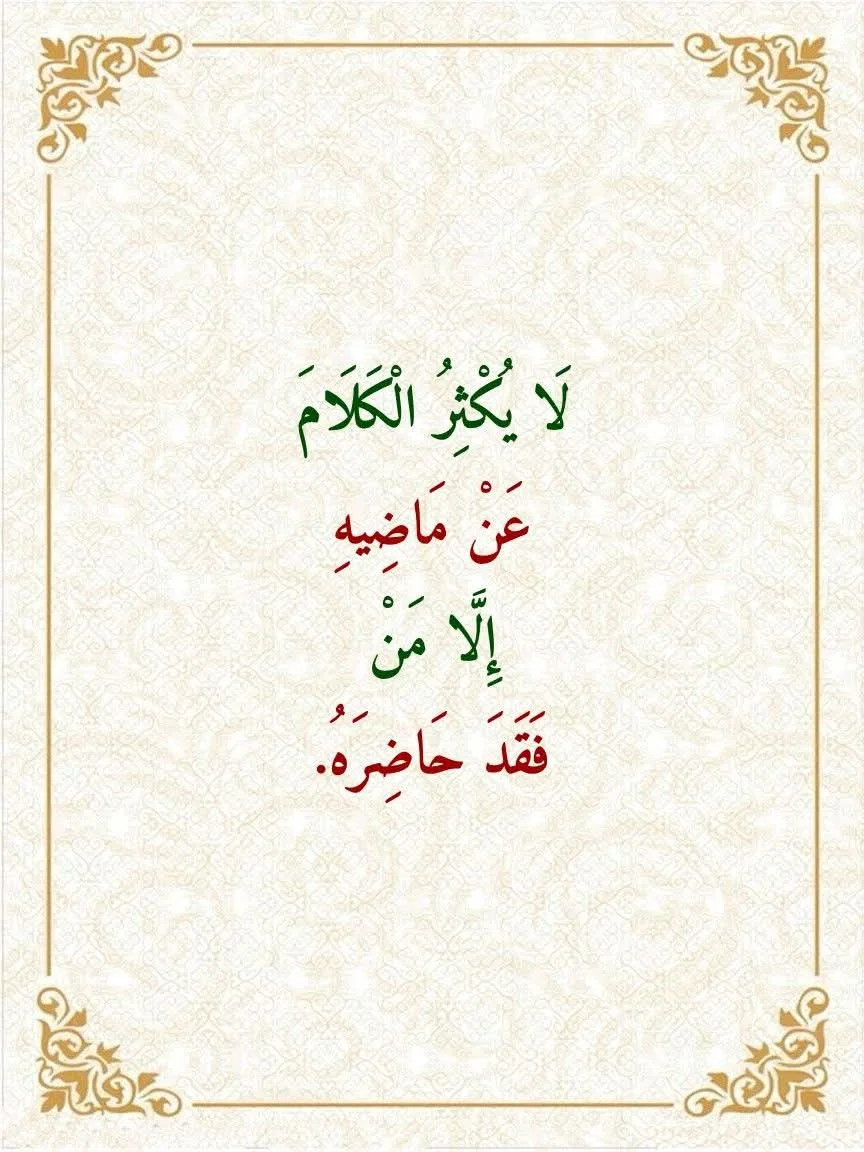 لَا يُكْثِرُ الْكَلَامَ
عَنْ مَاضِيهِ
إِلَّا مَنْ
فَقَدَ حَاضِرَهُ.